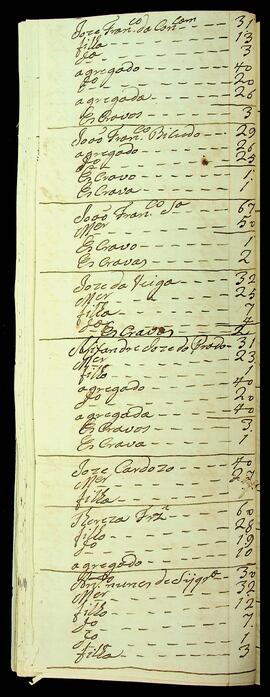 Joze Fran.co da Con.cam — 31
filha — 13
Jo — 3
agregado — 40
Jo — 20
agregada — 26
Escravos — 3
João Fran.co Bicudo — 29
agregado — 26
Jo — 25
Escravo — 1
Escrava — 1
João Fran.co — 67
Mer — 50
Escravo — 1
Escravas — 2
Joze da Veiga — 32
Mer — 25
filha — 7
Jo — 4
Escravas — 2
Alixandre Joze do Prado — 31
Mer — 23
filho — 1
agregado — 40
Jo — 20
agregada — 40
Escravos — 3
Escrava — 1
Joze Cardozo — 40
Mer — 27
filha
Tereza — 60
filho — 28
Jo — 19
Jo — 10
agregado
nunes de — 30
Mer — 32
filho — 12
Jo — 7
Jo — 1
filha — 3